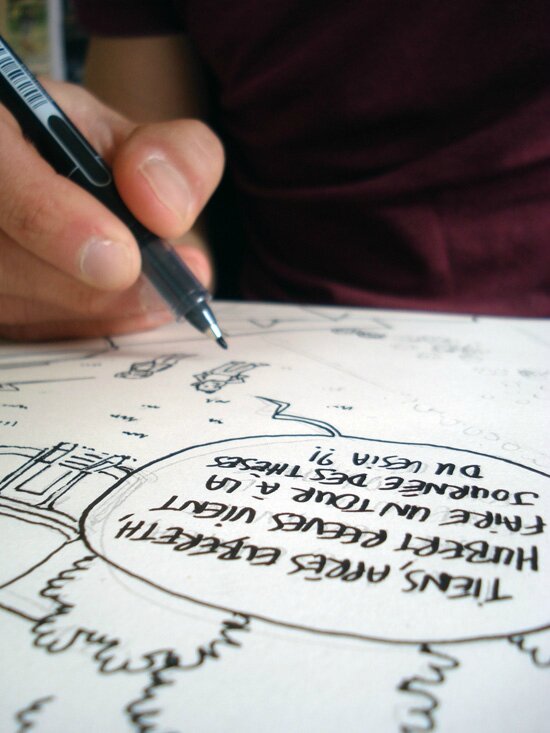 TIENS, APRÈS ELBERETH,
HUBERT REEVES VIENT
FAIRE UN TOUR À LA
JOURNÉE DES THÈSES
DU LESIA ?!